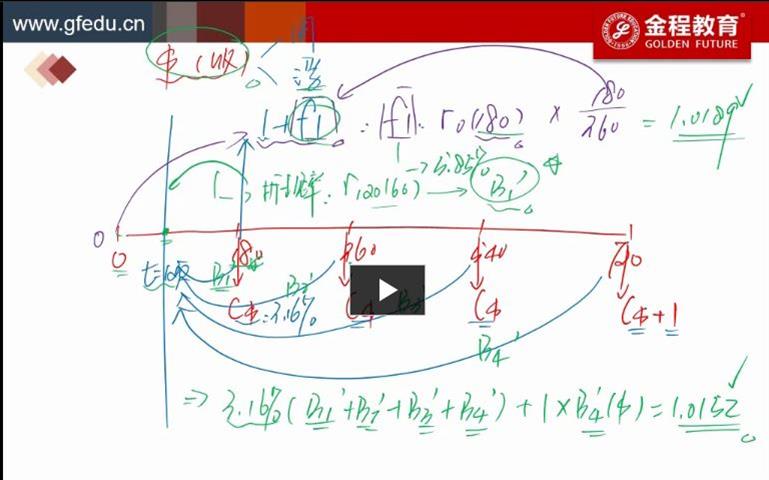 www.gfedu.cn
金程教育®
GOLDEN FUTURE
$ (收)
固
浮
1+f1 : f1: r0(180) × 180/360 = 1.0189
折现率: r120(60) → 5.85%
B1'
0
0 180 360 540 720
B1' B2' B3'
C$=3.16% C$ C$ C$+1
B4'
⇒ 3.16%(B1'+B2'+B3'+B4')+1×B4'($)=1.0152